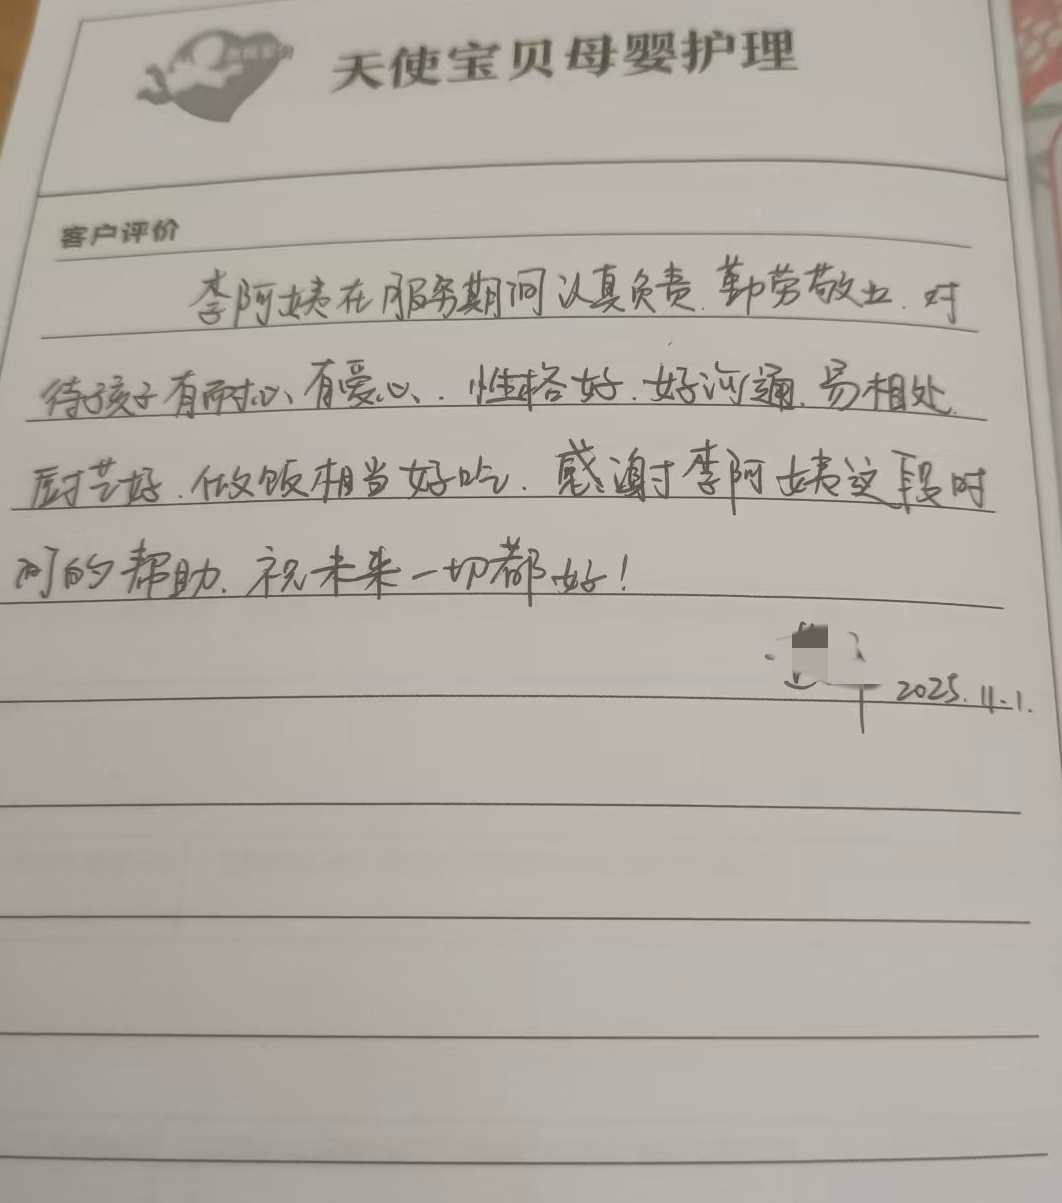 天使宝贝母婴护理
客户评价
李阿姨在服务期间认真负责.勤劳敬业.对
待孩子有耐心、有爱心、.性格好.好沟通.易相处.
厨艺好.做饭相当好吃.感谢李阿姨这段时
间的帮助.祝未来一切都好!
2025.11.1.